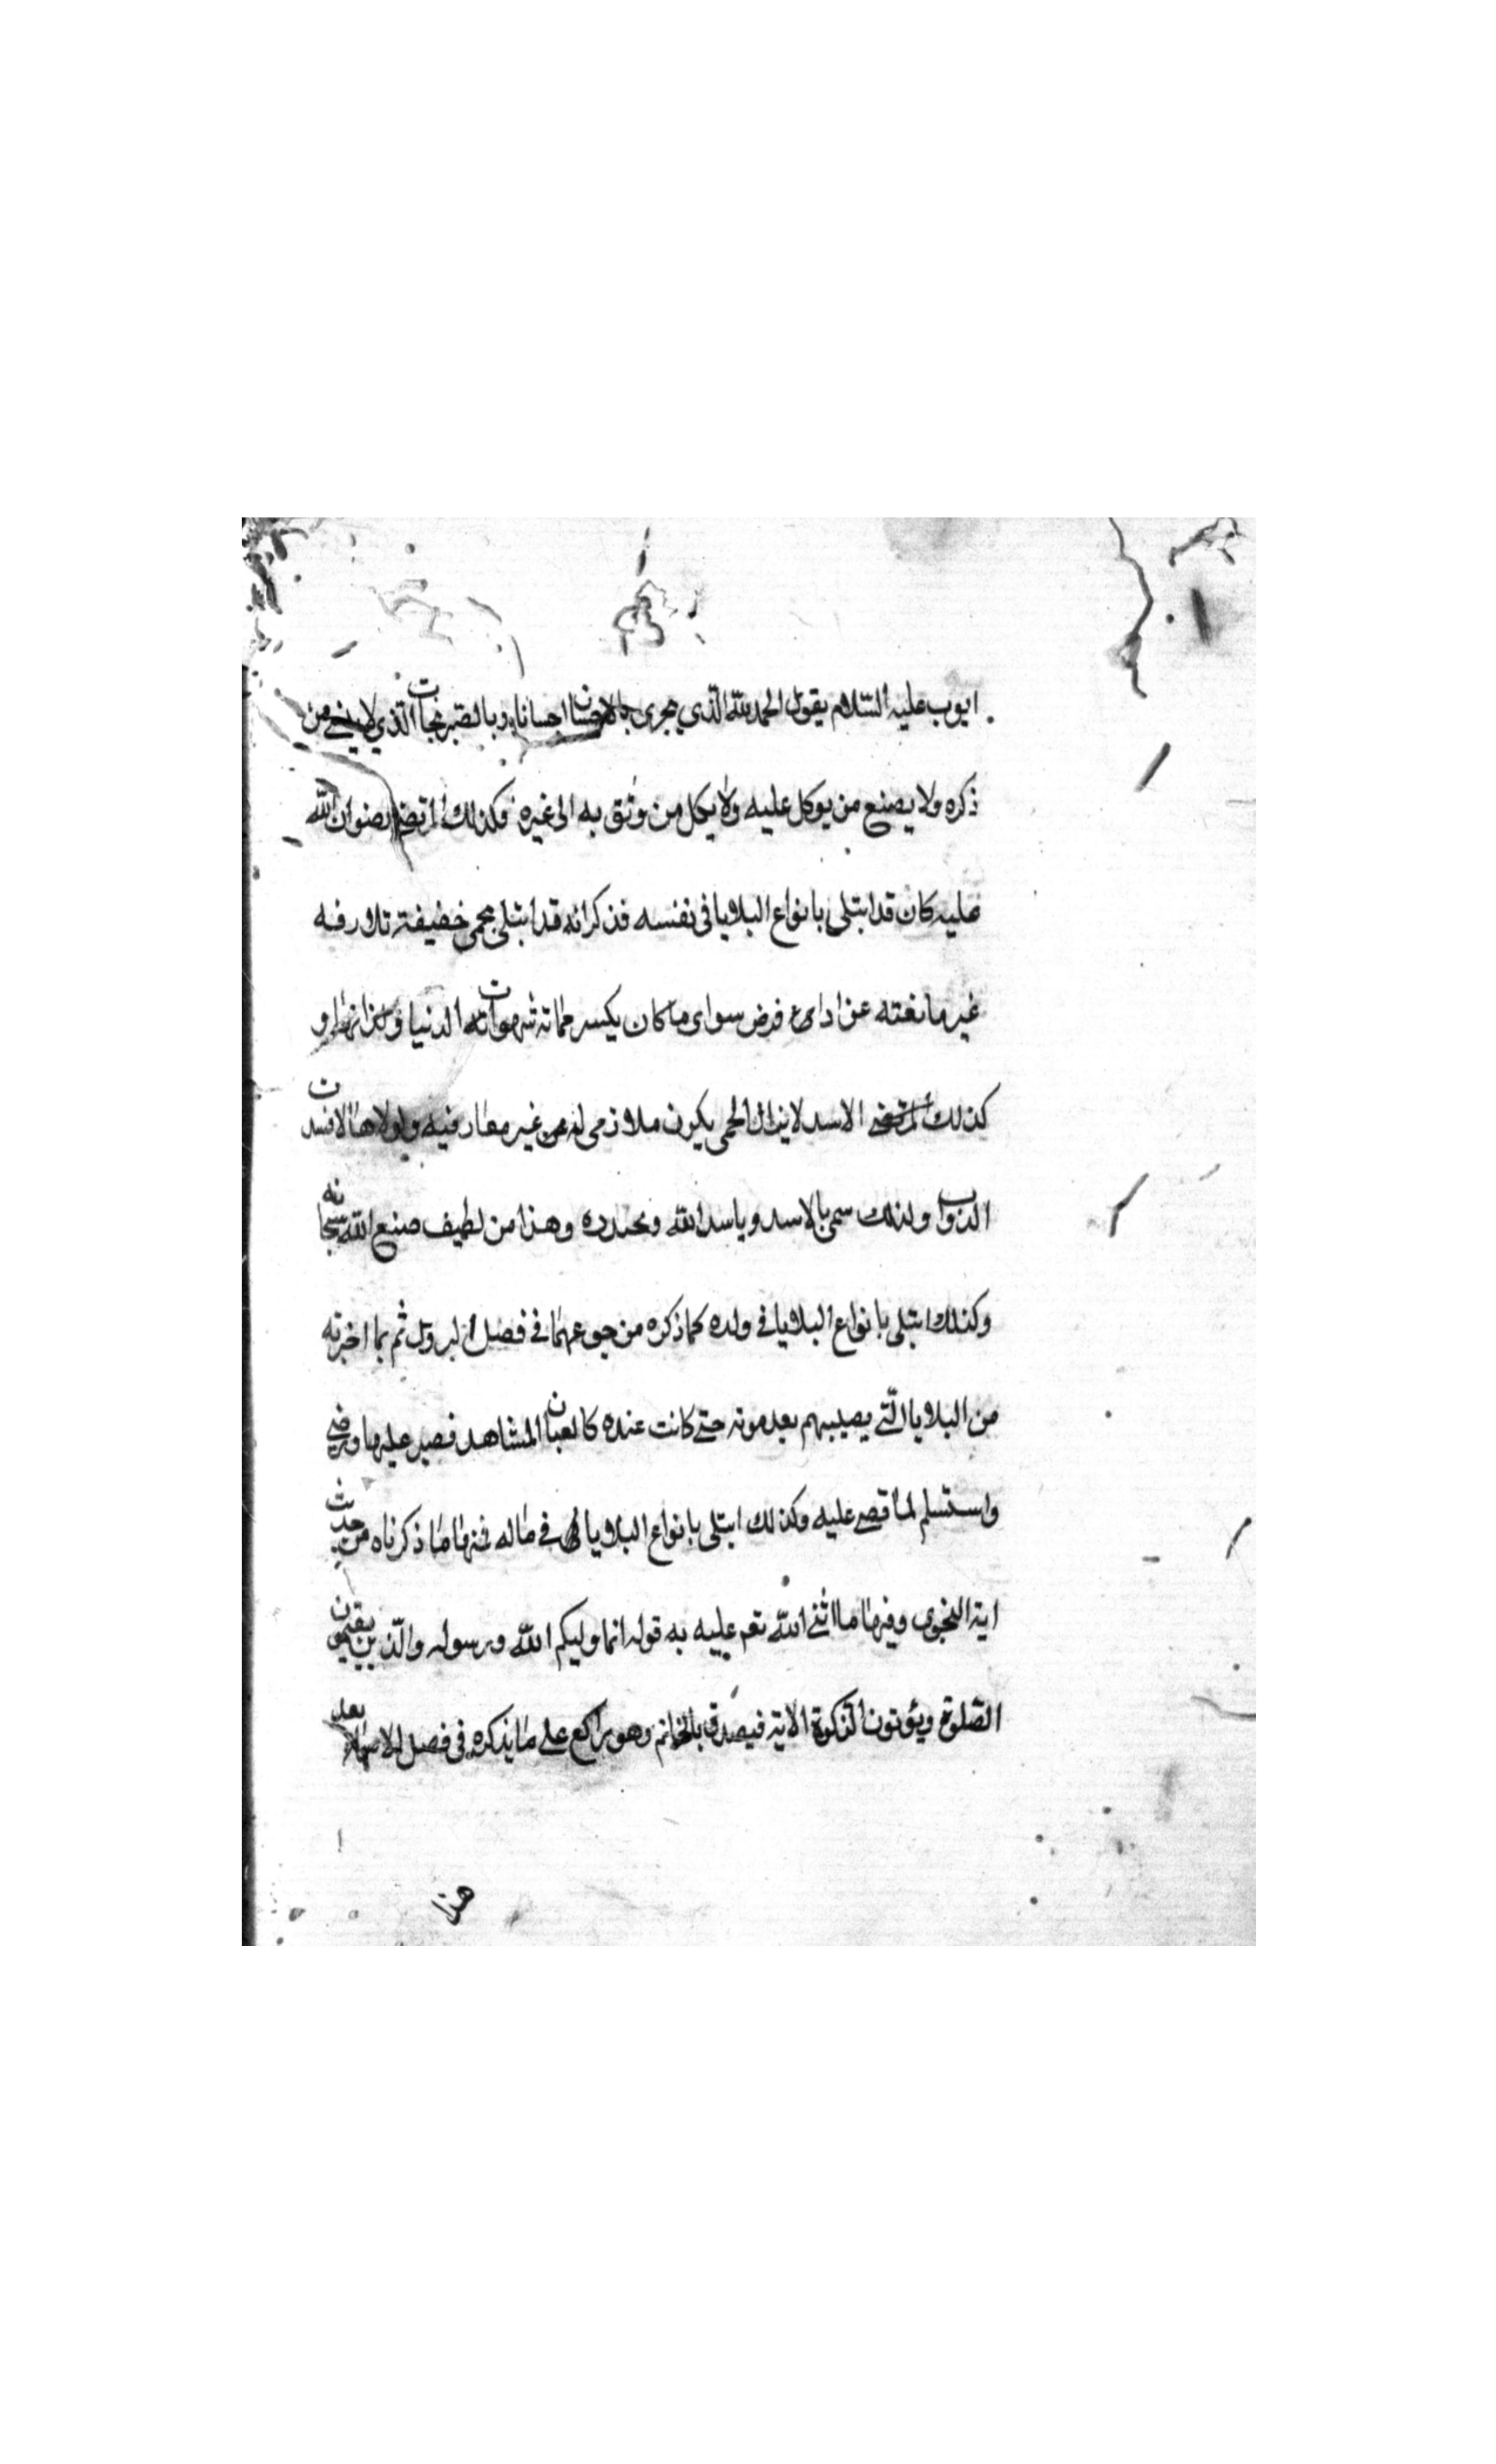 ايوب عليه السّلام يقول الحمد للّه الّذي يجزي بالاحسان احسانا وبالصّبر نجات الّذي لا ينسى من
ذكره ولا يصنع من يوكل عليه ولا يكل من وثق به الى غيره فكذلك المرتضى رضوان اللّه
عليه كان قد ابتلى بانواع البلايا فى نفسه فذكر انه قد ابتلى بحمى خفيفة تلارفه
غير مانعته عن اداى فرض سواى ما كان يكسر شهوات الدنيا ولذاتها و
كذلك الاسد لا يزال الحمى يكون ملازمى له من غير مفارفيه ولولاها لافسد
الدواب ولذلك سمى بالاسد وياسد اللّه وهذا من لطيف صنع اللّه سبحانه
وكذلك ابتلى بانواع البلايا فى ولده كما ذكره من جوعهما فى فصل ثم بما اخبرته
من البلايا الّتى يصيبهم بعد موته حتى كانت عنده كا لعيان المشاهد فصبر عليها ورضى
واستسلم لما قصى عليه وكذلك ابتلى بانواع البلايا فى ماله فمنها ما ذكرناه من حديث
اية النجوى وفيها ما اثنى اللّه تعم عليه به قوله انما وليكم اللّه ورسوله والّذين يقيمون
الصّلوة ويؤتون الزكوة الاية فيصدق بالخاتم وهو راكع على ما يذكره فى فصل الاسماء بعد
هذا